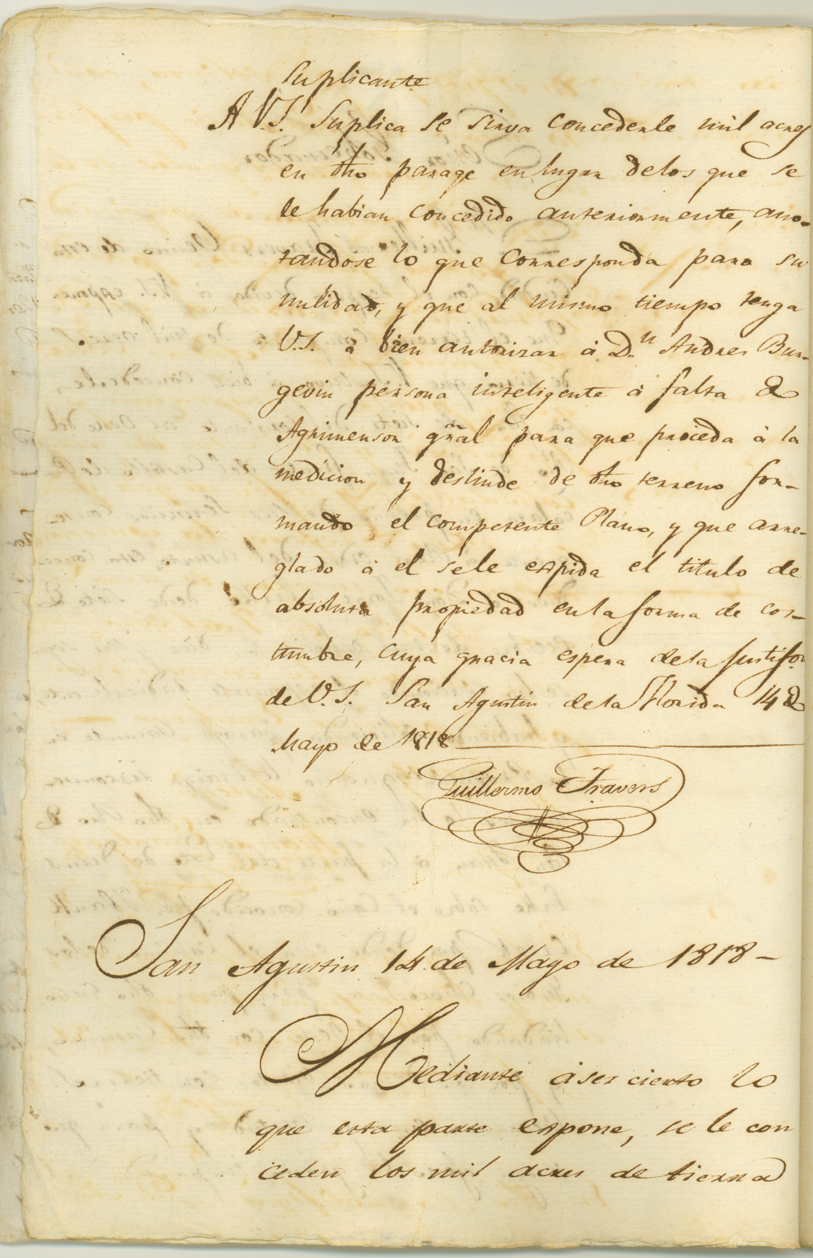 suplicante
A V.S. Suplica se sirva concederle mil acres
en dho parage en lugar delos que se
le habian concedido anteriormente, ano-
tandose lo que corresponda para su
nulidad, y que al mismo tiempo tenga
V.S. á bien autorizar á D.n Andres Bur-
gevin persona inteligente á falta de
Agrimensor gñal para que proceda á la
medicion y deslinde de dho terreno for-
mando el competente Plano, y que arre-
glado á el sele espida el titulo de
absoluta propiedad en la forma de cos-
tumbre, cuya gracia espera dela Justifon
de V.S. San Agustin dela Florida 14 de
Mayo de 1818
Guillermo Travers
San Agustin 14 de Mayo de 1818-
Mediante áser cierto lo
que esta parte espone, se le con
ceden los mil acres de tierra